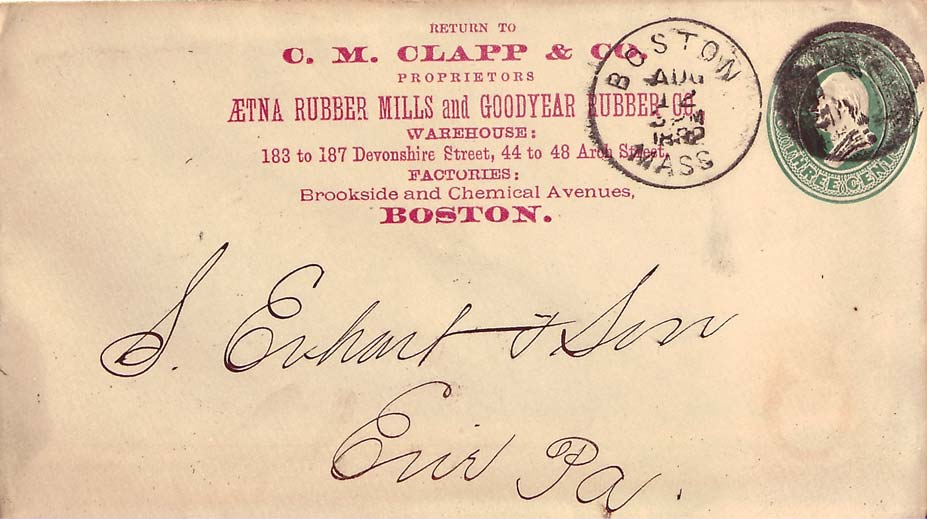 RETURN TO
C. M. CLAPP & CO.
PROPRIETORS
ÆTNA RUBBER MILLS and GOODYEAR RUBBER CO.
WAREHOUSE:
183 to 187 Devonshire Street, 44 to 48 Arch Street,
FACTORIES:
Brookside and Chemical Avenues,
BOSTON.
BOSTON
AUG
188
MASS
THREE CENTS
S. Erhart & Son
Erie Pa.